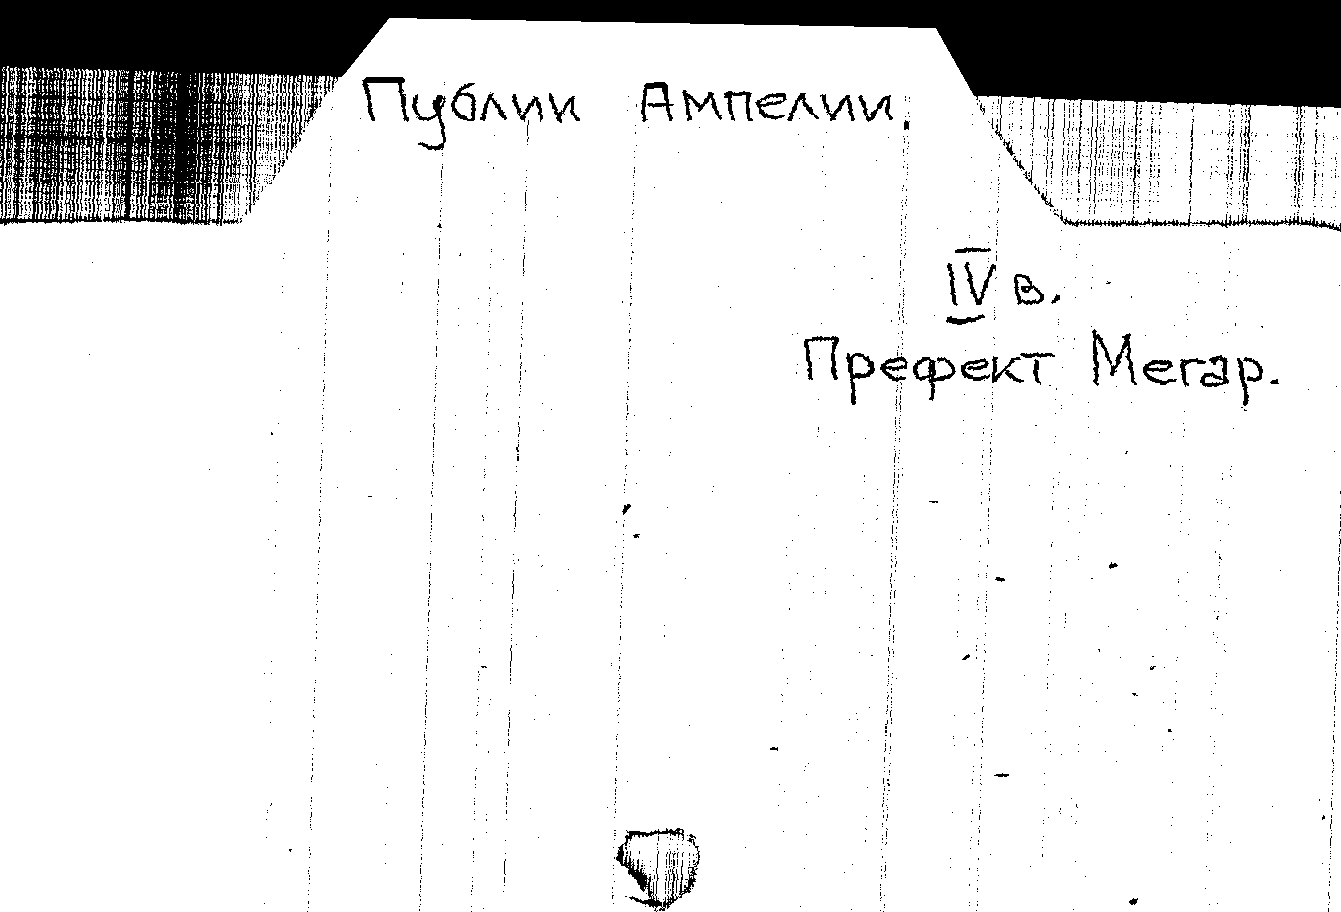 Публии Ампелии.
IV в.
Префект Мегар.